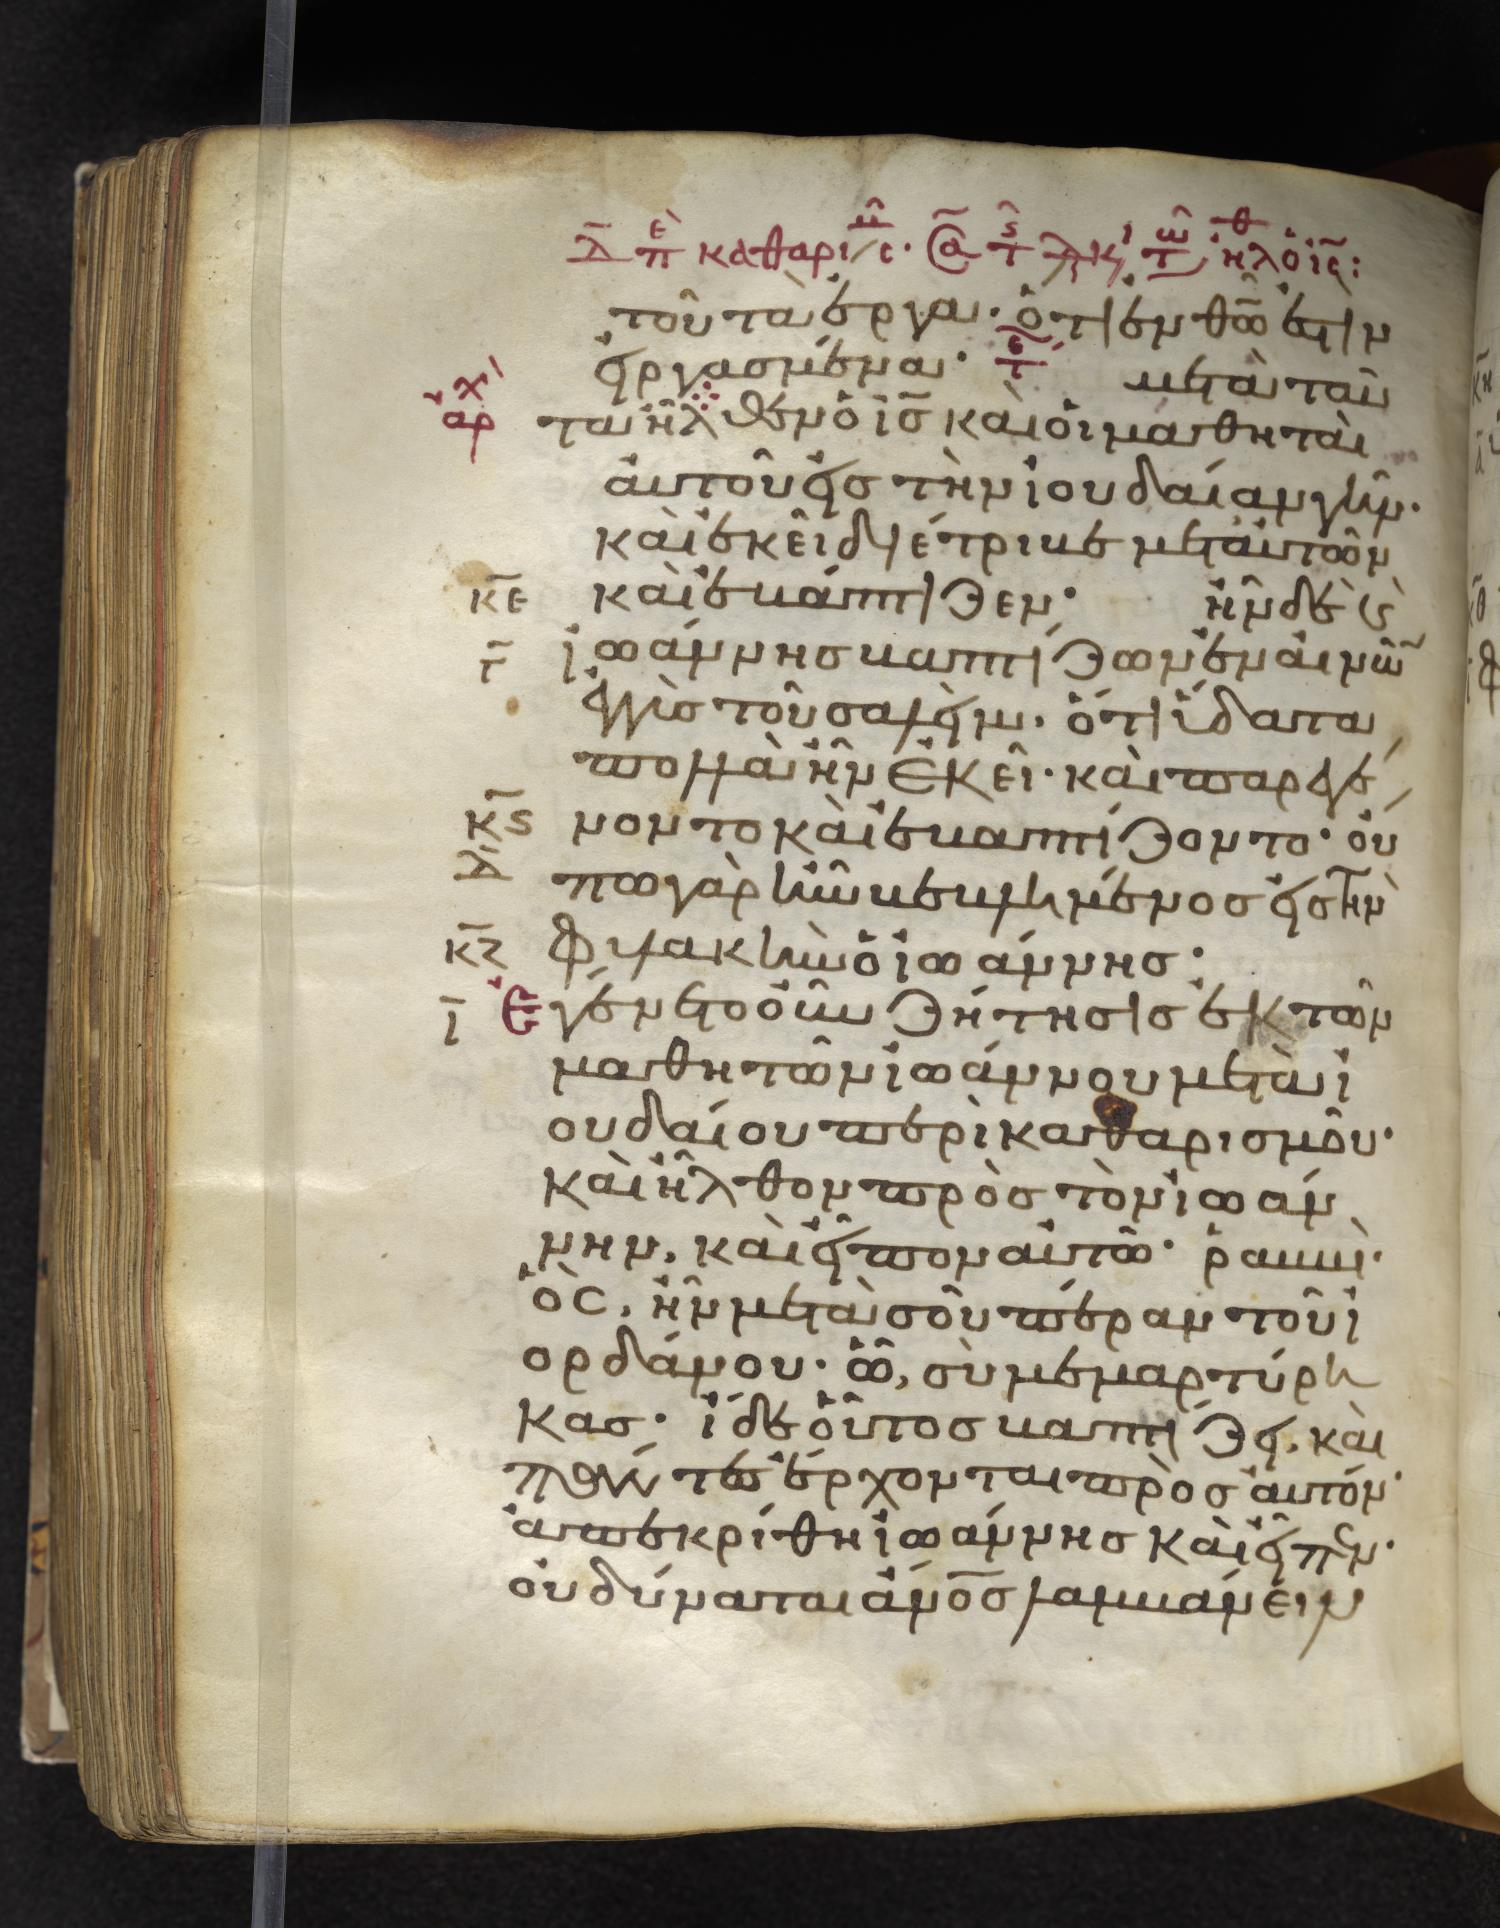 τοῦ τὰ ἔργα· ὅτι ἐν θω̅ ἐστιν
εἰργασμένα· μετὰ ταῦ
τα ἦλθεν ὁ ις̅ καὶ οἱ μαθηταὶ
αὐτοῦ εἰς τὴν ἰουδαίαν γῆν·
καὶ ἐκεῖ διέτριβε μετ' αὐτῶν
κε̅ καὶ ἐβάπτιζεν· ἦν δὲ καὶ
γ̅ ἰωάννης βαπτίζων ἐν αἰνὼν
ἐγγὺς τοῦ σαλείμ· ὅτι ὕδατα
πολλὰ ἦν ἐκεῖ· καὶ παρεγέ
κς̅ νοντο καὶ ἐβαπτίζοντο· οὔ
πω γὰρ ἦν βεβλημένος εἰς τὴν
κζ̅ φυλακὴν ὁ ἰωάννης·
ι̅ ἐγένετο οὖν ζήτησις ἐκ τῶν
μαθητῶν ἰωάννου μετὰ ἰ
ουδαίου περὶ καθαρισμοῦ·
καὶ ἦλθον πρὸς τὸν ἰωάν
νην, καὶ εἶπον αὐτῶ· ῥαββὶ·
ὃς, ἦν μετὰ σοῦ πέραν τοῦ ἰ
ορδάνου· ὧ, σὺ μεμαρτύρη
κας· ἴδε οὗτος βαπτίζει, καὶ
πάντες ἔρχονται πρὸς αὐτόν·
ἀπεκρίθη ἰωάννης καὶ εἶπεν·
οὐ δύναται ἀνο̅ς λαμβάνειν